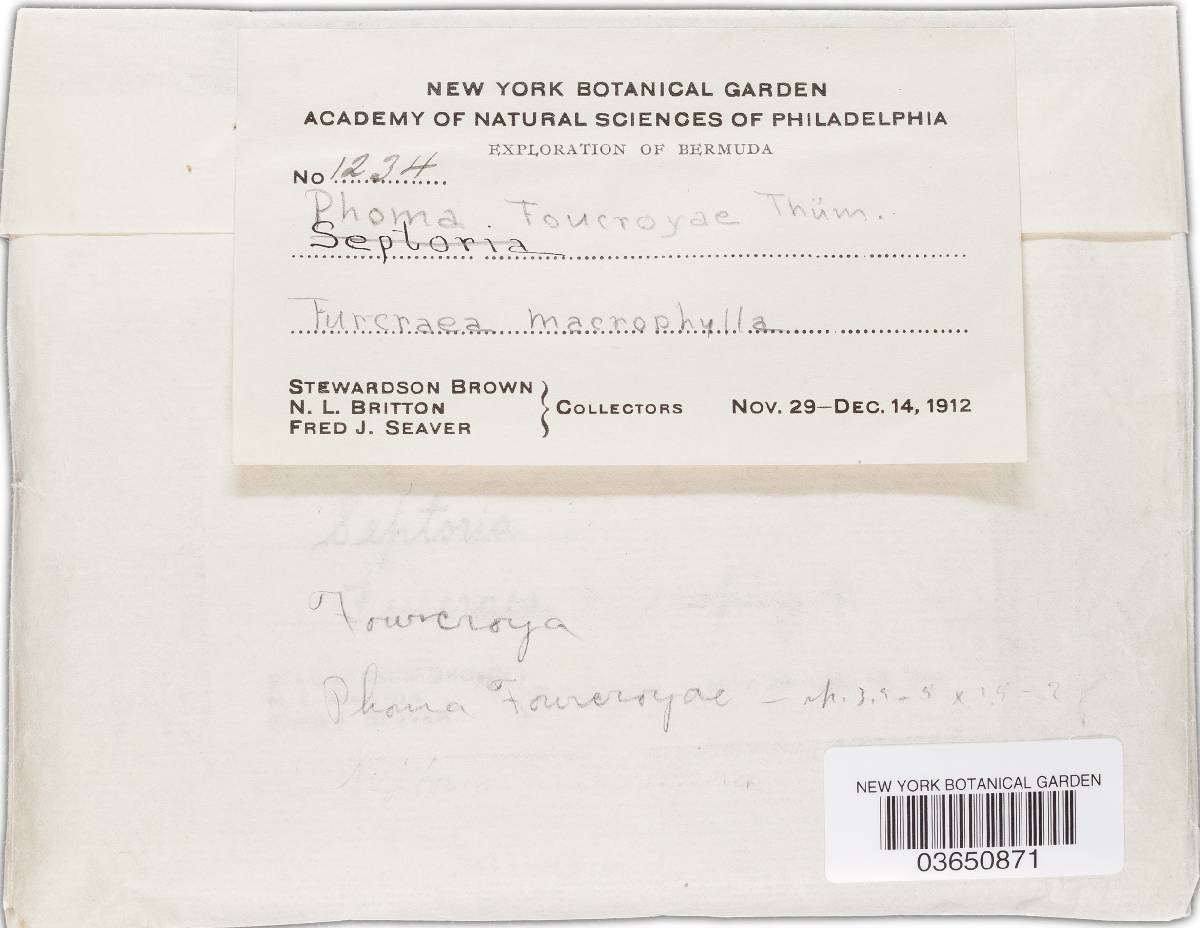 NEW YORK BOTANICAL GARDEN
ACADEMY OF NATURAL SCIENCES OF PHILADELPHIA
EXPLORATION OF BERMUDA
No 1234
Phoma Foucroyae Thüm.
Septoria
Furcraea macrophylla
STEWARDSON BROWN
N. L. BRITTON
FRED J. SEAVER
} COLLECTORS NOV. 29–DEC. 14, 1912
Septoria
Fourcroya
Phoma Fourcroyae –
NEW YORK BOTANICAL GARDEN
03650871